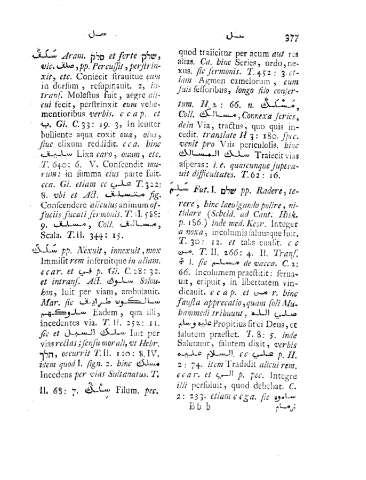 377
سَلَقَ Aram. סלק et ferte שלק,
vic. صلف, pp. Percussit, perstrin-
xit, etc. Coniecit strauitue eum
in dorsum, resupinauit. 2, in-
tranf. Moleſtus fuit, aegre ali-
cui fecit, perſtrinxit eum vehe-
mentioribus verbis. c c a p. et
ب. Gl. C. 33: 19. 3, In leniter
bulliente aqua coxit oua, olus,
ſiue elixum reddidit. c c a. hinc
سليق Lixa caro, ouum, etc.
T. 640: 6. V. Conſcendit mu-
rum: in ſumma eius parte fuit.
cca. Gl. etiam cc على T. 322:
8. vbi et Act. متسلق fig.
Conſcendere alicuius animum of-
fuciis fucati ſermonis. T. I. 588:
9. مسلاق, Coll. مسالق,
Scala. T. II. 344: 15.
سَلَكَ pp. Nexuit, innexuit, mox
Immiſit rem inferuitque in aliam.
c c a r. et في p. Gl. C. 28: 32.
et intranf. Act. سلوك Subiu-
bon, Iuit per viam, ambulauit.
Mar. ſic سالكون طرايق
سلوكهم Eadem, qua illi,
incedentes via. T. II. 252: 11.
ſic سلك السبل et Iuit per
vias rectas; ſenſu morali, vt Hebr.
הלך, occurrit T. II. 120: 8. IV.
idem quod I. ſign. 2. hinc مسلك
Incedens per vias Sultanatus. T.
II. 68: 7. سِلْكٌ Filum, pec.
quod traiicitur per acum aut res
alias. Ca. hinc Series, ordo, ne-
xus. ſic ſermonis. T. 452: 3. et-
iam Agmen camelorum, cum
ſuis ſeſſoribus, longo filo conſer-
tum. H. 2: 66. n. مسلك,
Coll. مسالك, Connexa ſeries,
dein Via, tractus, quo quis in-
cedit. translate H. 3: 180. ſpec.
venit pro Viis periculoſis. hinc
سلك المسالك Traiecit vias
aſperas: i. e. quascunque ſupera-
uit difficultates. T. 62: 16.
سَلِمَ Fut. I. שלם pp. Radere, te-
rere, hinc laeuigando polire, ni-
tidare (Scheld. ad Cant. Hisk.
p. 186.) inde med. Keſr. Integer
a noxa, incolumis ſaluusque fuit.
T. 30: 12. et tuta ceſſit. c c
من T. II. 266: 4. II. Tranſ.
f I. ſic مسلمة de vacca. C. 2:
66. Incolumem praeſtitit: ſerua-
uit, eripuit, in libertatem vin-
dicauit. c c a p. et من r. hinc
fauſta apprecatio, quam ſoli Mu-
hammedi tribuunt, صلى الله
عليه وسلم Propitius ſit ei Deus, et
ſaluum praeſtet. T. 8: 5. inde
Salutauit, ſaluum dixit, verbis
السلام عليه. c c على p. H.
2: 74. item Tradidit alicui rem.
c c a r. et الى p. pec. Integre
illi perſoluit, quod debebat. C.
2: 233.
B b b